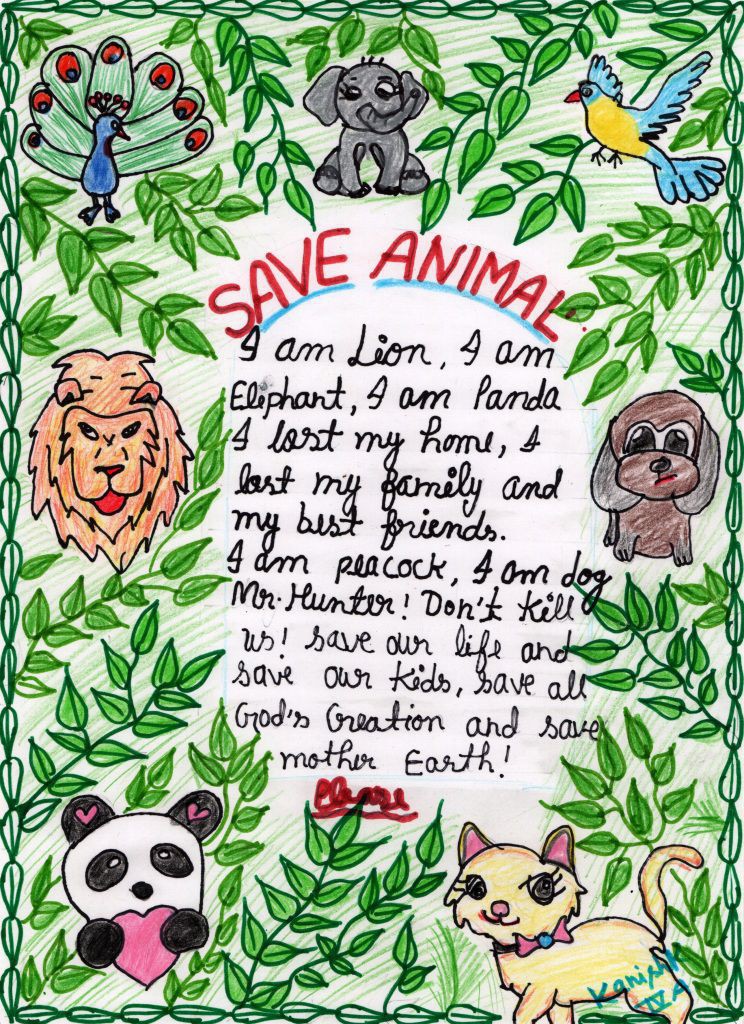 SAVE ANIMAL
I am Lion, I am
Elephant, I am Panda
I lost my home, I
lost my family and
my best friends.
I am peacock, I am dog
Mr. Hunter! Don't Kill
us! save our life and
save our Kids, save all
God's Creation and save
mother Earth!
Please
IV A